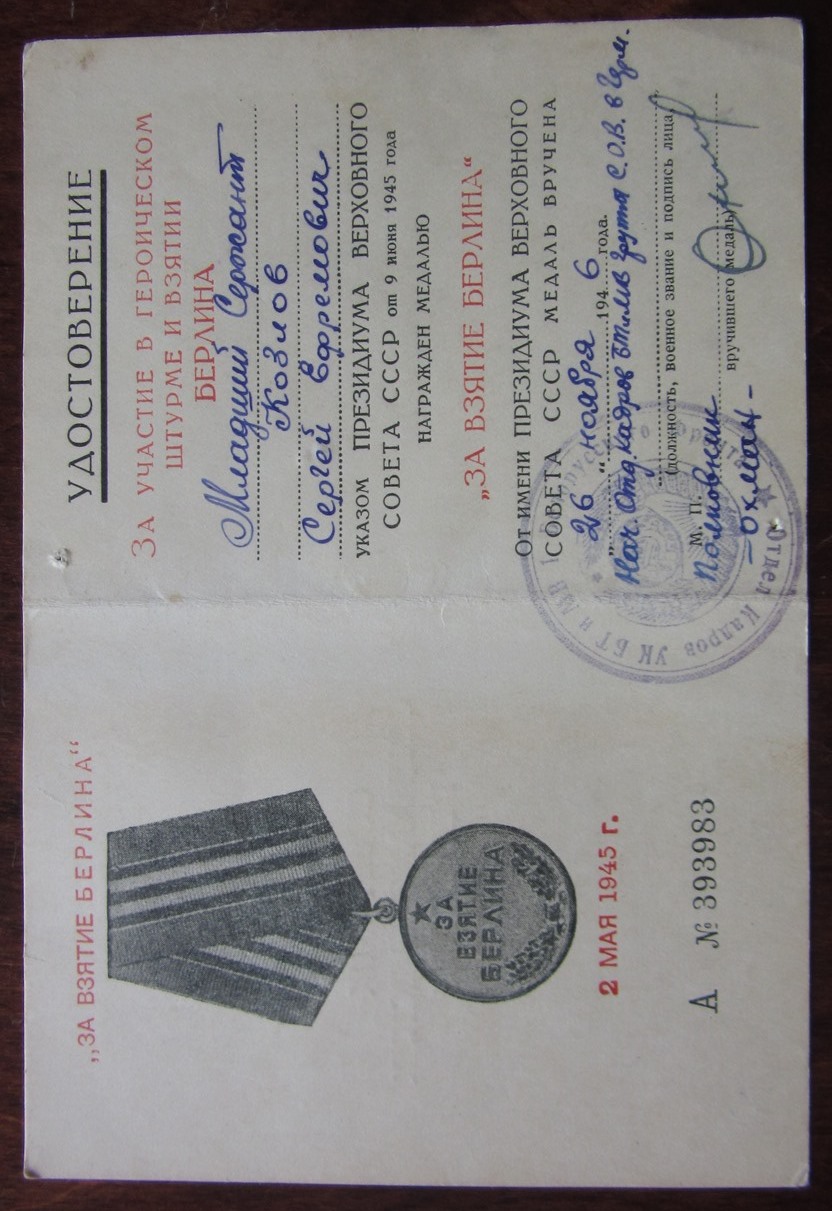 „ЗА ВЗЯТИЕ БЕРЛИНА“
ЗА
ВЗЯТИЕ
БЕРЛИНА
2 МАЯ 1945 г.
А № 393983
УДОСТОВЕРЕНИЕ
ЗА УЧАСТИЕ В ГЕРОИЧЕСКОМ
ШТУРМЕ И ВЗЯТИИ
БЕРЛИНА
Младший Сержант
Козлов
Сергей Ефремович
УКАЗОМ ПРЕЗИДИУМА ВЕРХОВНОГО
СОВЕТА СССР от 9 июня 1945 года
НАГРАЖДЕН МЕДАЛЬЮ
„ЗА ВЗЯТИЕ БЕРЛИНА“
ОТ ИМЕНИ ПРЕЗИДИУМА ВЕРХОВНОГО
СОВЕТА СССР МЕДАЛЬ ВРУЧЕНА
„26“ ноября 1946 года.
Нач. Отд. Кадров БТиМВ группа С.О.В. в Герм.
(должность, военное звание и подпись лица,
М. П.
Полковник
вручившего медаль)
-Охман-
Отдел Кадров УК БТ и МВ